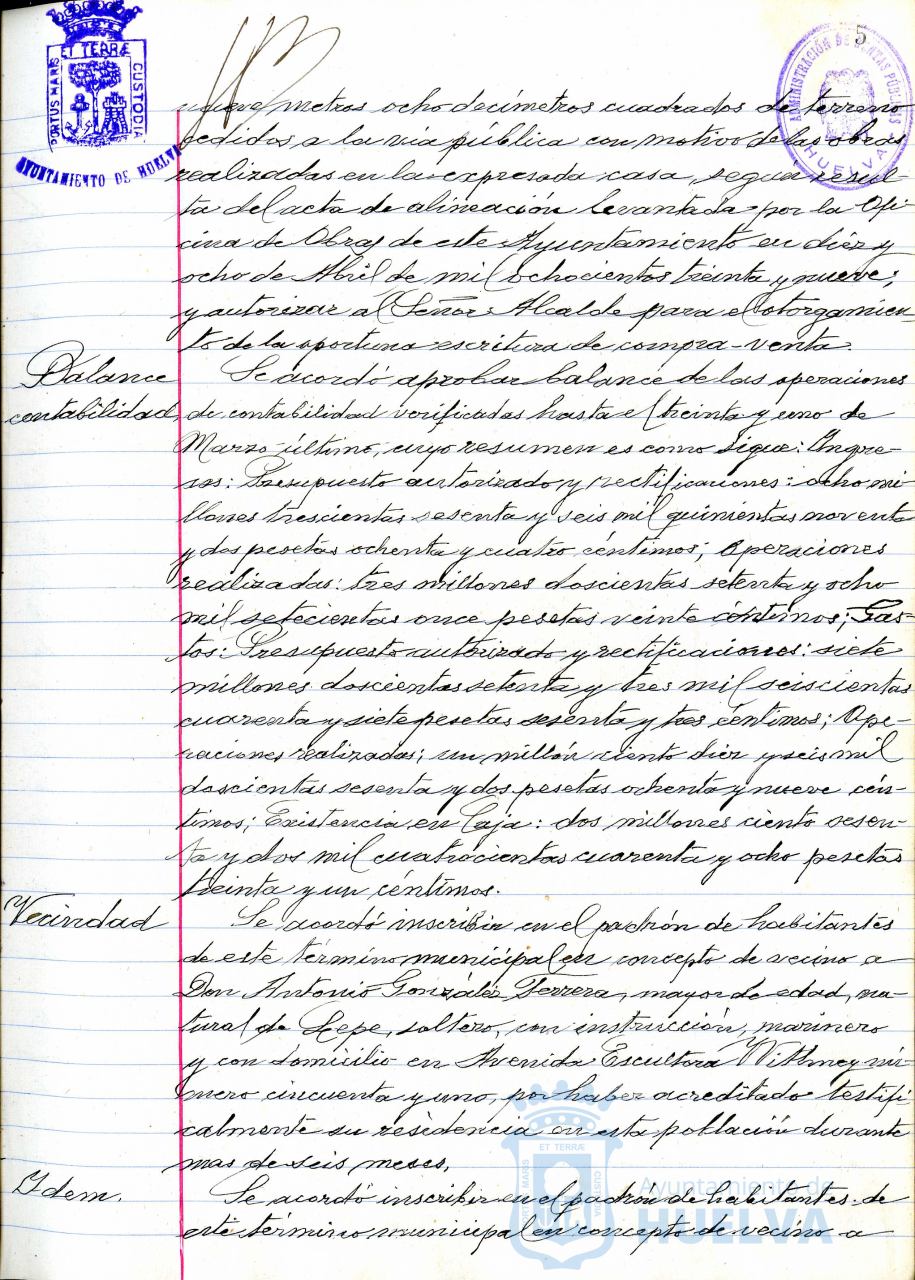 5
PORTUS MARIS ET TERRÆ CUSTODIA
AYUNTAMIENTO DE HUELVA
ADMINISTRACIÓN DE RENTAS PÚBLICAS
HUELVA
nueve metros ocho decímetros cuadrados de terreno
cedidos a la vía pública con motivo de las obras
realizadas en la expresada casa, según resul-
ta del acta de alineación levantada por la Ofi
cina de Obras de este Ayuntamiento en diez y
ocho de Abril de mil ochocientos treinta y nueve;
y autorizar al Señor Alcalde para el otorgamien-
to de la oportuna escritura de compra-venta.
Balance
contabilidad
Se acordó aprobar balance de las operaciones
de contabilidad verificadas hasta el treinta y uno de
Marzo último, cuyo resumen es como sigue: Ingre-
sos: Presupuesto autorizado y rectificaciones: ocho mi
llones trescientas sesenta y seis mil quinientas noventa
y dos pesetas ochenta y cuatro céntimos; Operaciones
realizadas: tres millones doscientas setenta y ocho
mil setecientas once pesetas veinte céntimos; Gas-
tos: Presupuesto autorizado y rectificaciones: siete
millones doscientas setenta y tres mil seiscientas
cuarenta y siete pesetas sesenta y tres céntimos; Ope-
raciones realizadas; un millón ciento diez y seis mil
doscientas sesenta y dos pesetas ochenta y nueve cén-
timos; Existencia en Caja: dos millones ciento sesen-
ta y dos mil cuatrocientas cuarenta y ocho pesetas
treinta y un céntimos.
Vecindad
Se acordó inscribir en el padrón de habitantes
de este término municipal en concepto de vecino a
Don Antonio González Ferrera, mayor de edad, na-
tural de Lepe, soltero, con instrucción, marinero
y con domicilio en Avenida Escultora Withney nú-
mero cincuenta y uno, por haber acreditado testifi-
calmente su residencia en esta población durante
mas de seis meses.
Idem.
Se acordó inscribir en el padrón de habitantes de
este término municipal en concepto de vecino a
Ayuntamiento de
HUELVA